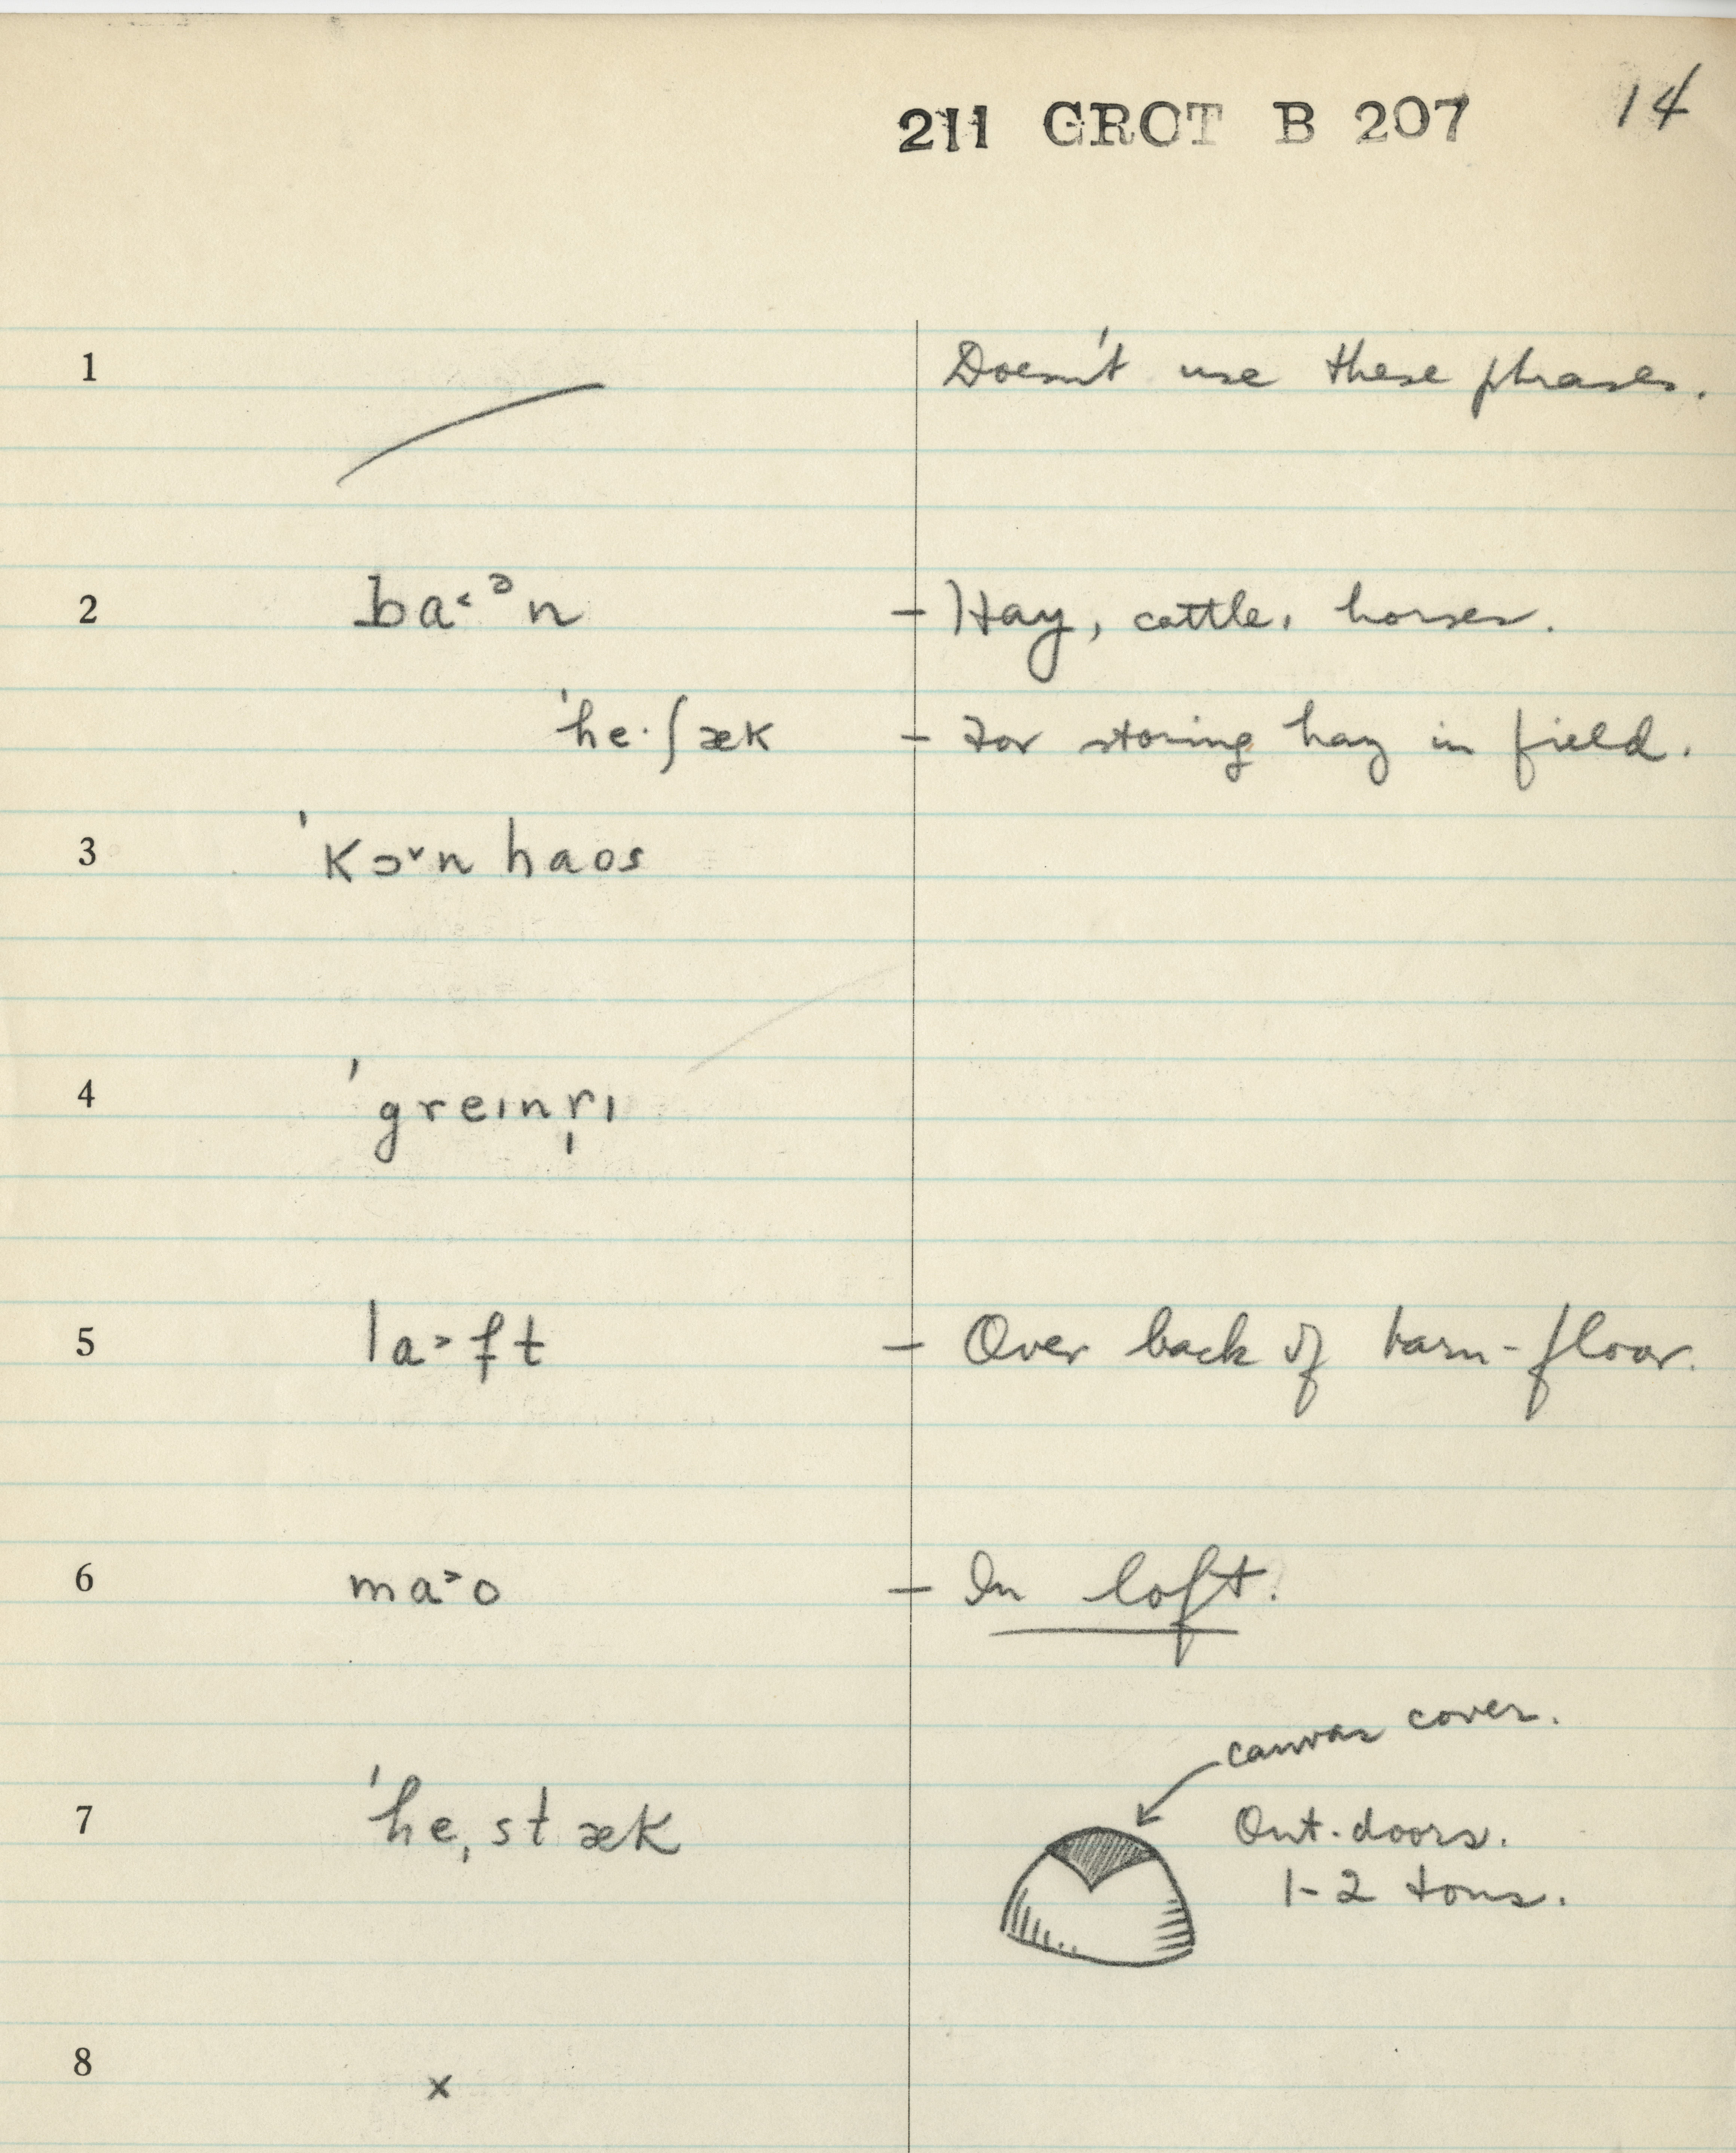 211 GROT B 207 14
1 Doesn't use these phrases.
2 ba˂ᵊn – Hay, cattle, horses.
ˈhe·ʃæk – For storing hay in field.
3 ˈkɔ˅n haos
4 ˈgreɪnr̩ɪ
5 la˃ft – Over back of barn-floor.
6 ma˃o – In loft.
canvas cover.
7 ˈheˌstæk Out-doors.
1-2 tons.
8 x